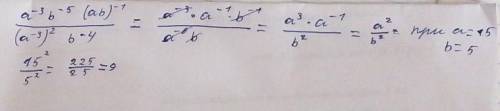 a⁻³ b⁻⁵ (ab)⁻¹ / (a⁻³)² b⁻⁴ = a⁻³ · a⁻¹ · b⁻¹ / a⁻⁶ b = a³ · a⁻¹ / b² = a² / b² = при a = 15
b = 5
15² / 5² = 225 / 25 = 9